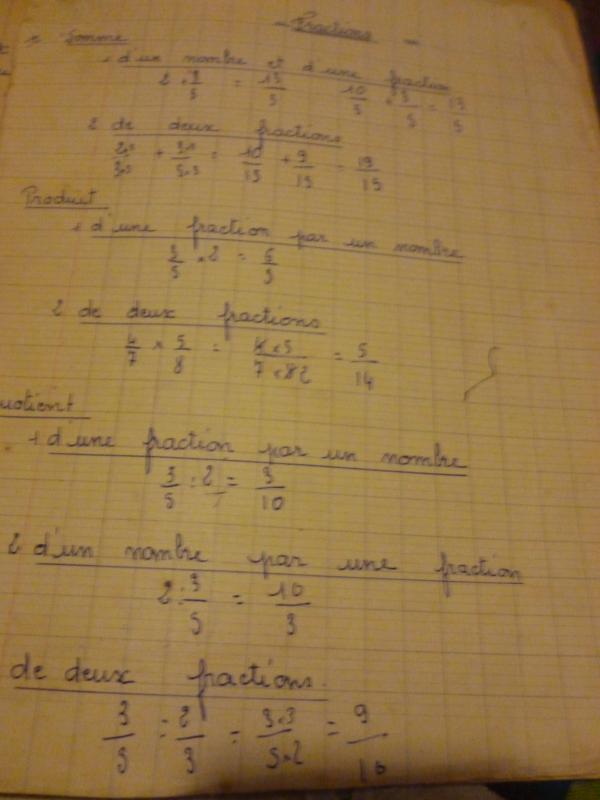 - Fractions -
Somme
1 d'un nombre et d'une fraction
2 + 3/5 = 13/5 10/5 + 3/5 = 13/5
2 de deux fractions
2×5/3×5 + 3×3/5×3 = 10/15 + 9/15 = 19/15
Produit
1 d'une fraction par un nombre
3/5 × 2 = 6/5
2 de deux fractions
4/7 × 5/8 = 4×5/7×82 = 5/14
quotient
1 d'une fraction par un nombre
3/5 : 2 = 3/10
2 d'un nombre par une fraction
2 : 3/5 = 10/3
de deux fractions.
3/5 : 2/3 = 3×3/5×2 = 9/10